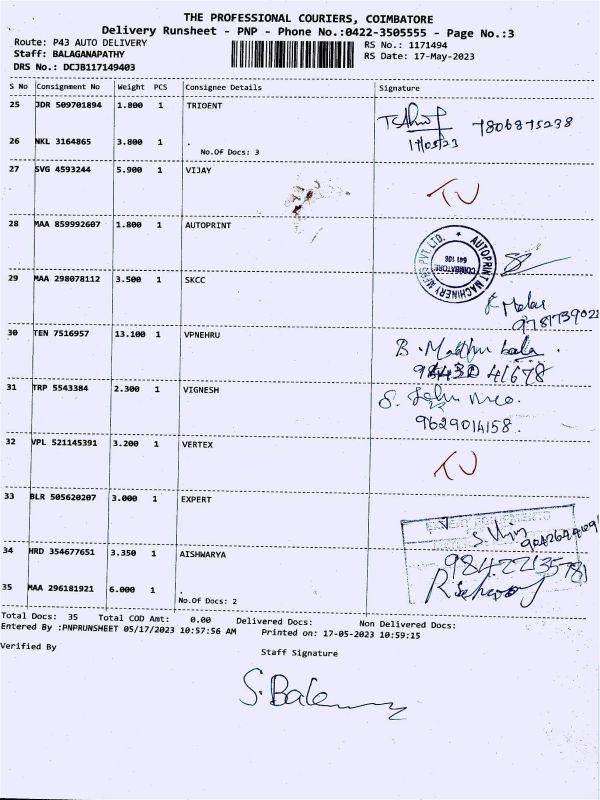 THE PROFESSIONAL COURIERS, COIMBATORE
Delivery Runsheet - PNP - Phone No.:0422-3505555 - Page No.:3
Route: P43 AUTO DELIVERY RS No.: 1171494
Staff: BALAGANAPATHY RS Date: 17-May-2023
DRS No.: DCJB117149403
S No Consignment No Weight PCS Consignee Details Signature
25 JDR 509701894 1.800 1 TRIDENT
7806875238
17/05/23
26 NKL 3164865 3.800 1 .
No.Of Docs: 3
27 SVG 4593244 5.900 1 VIJAY
28 MAA 859992607 1.800 1 AUTOPRINT
AUTOPRINT MACHINERY MFRS PVT. LTD. ★
COIMBATORE
641 108
29 MAA 298078112 3.500 1 SKCC
30 TEN 7516957 13.100 1 VPNEHRU B. Madhu bala.
98430 41678
31 TRP 5543384 2.300 1 VIGNESH
9629014158.
32 VPL 521145391 3.200 1 VERTEX
33 BLR 505620207 3.000 1 EXPERT
34 HRD 354677651 3.350 1 AISHWARYA
9842213578
35 MAA 296181921 6.000 1 .
No.Of Docs: 2
Total Docs: 35 Total COD Amt: 0.00 Delivered Docs: Non Delivered Docs:
Entered By :PNPRUNSHEET 05/17/2023 10:57:56 AM Printed on: 17-05-2023 10:59:15
Verified By Staff Signature